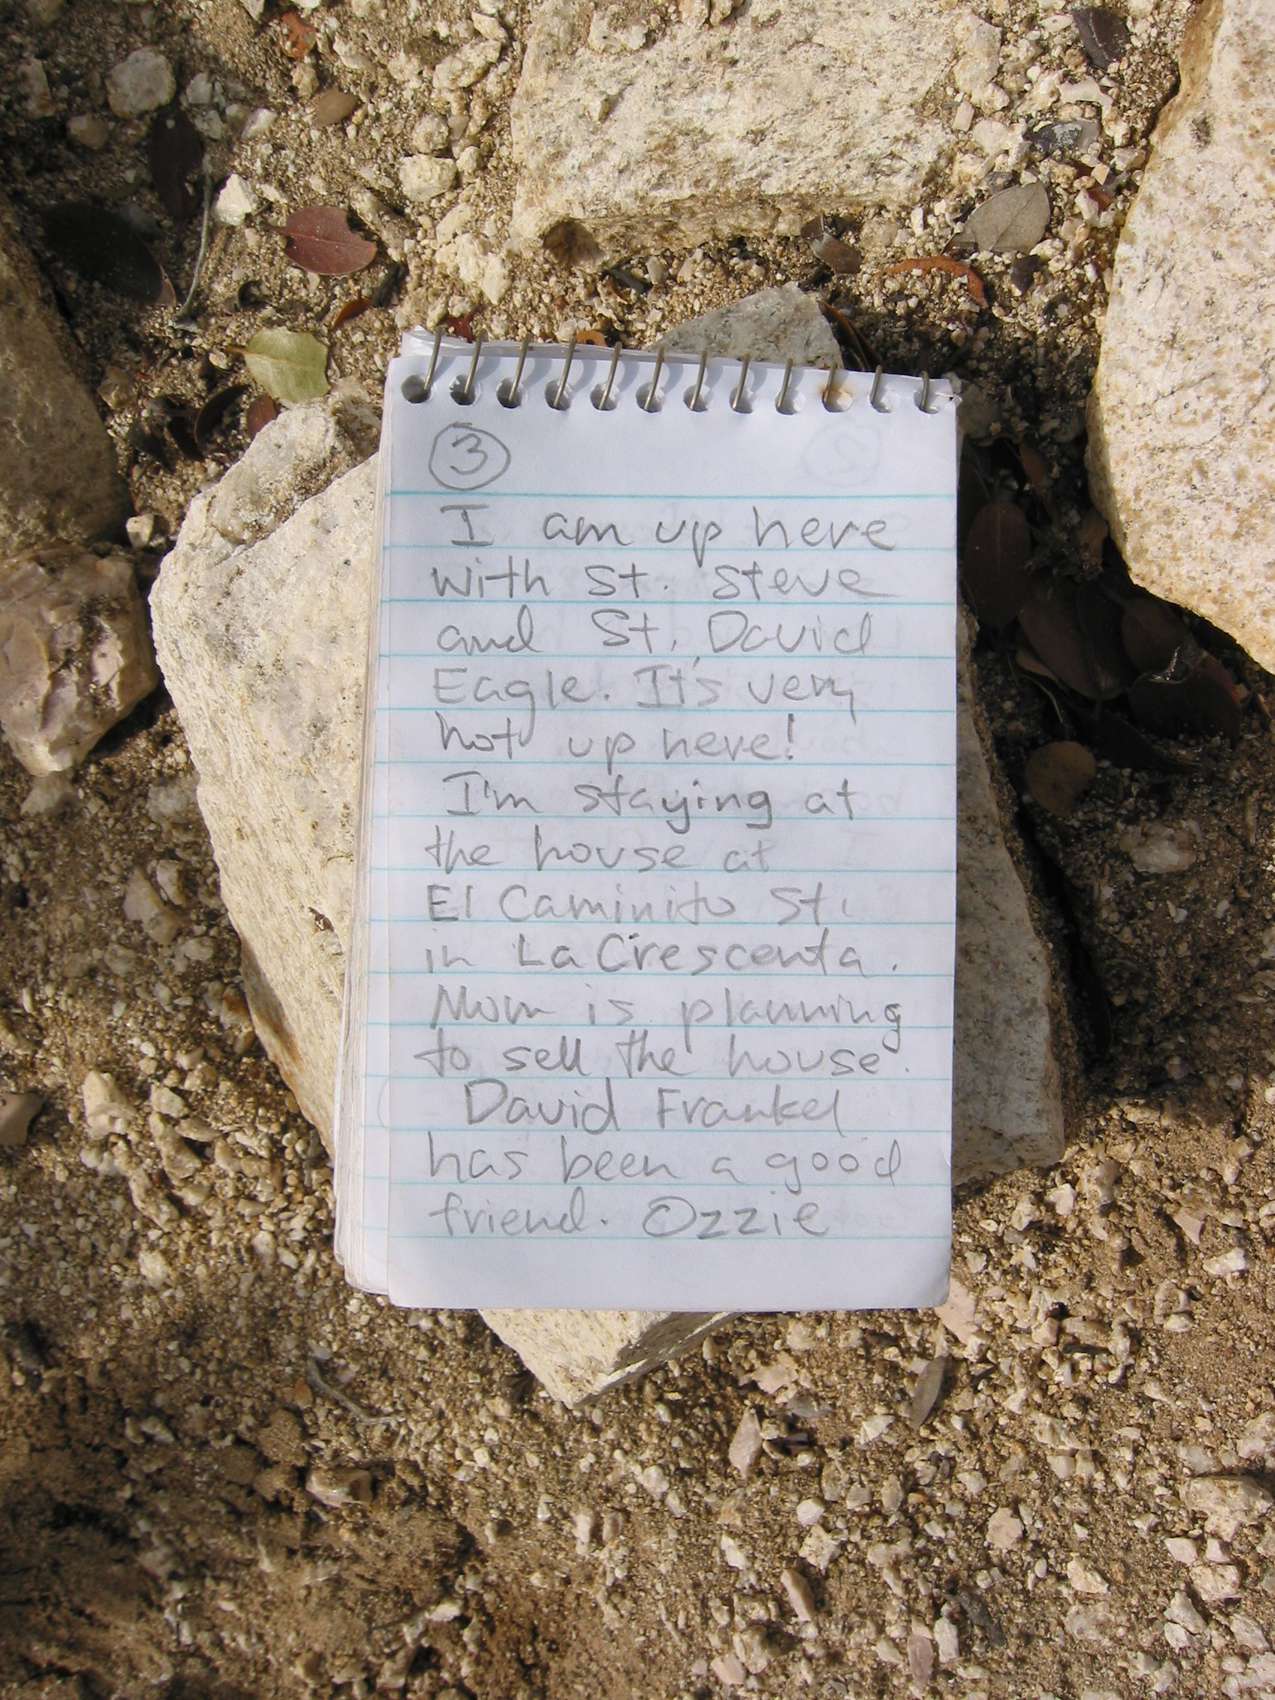 3
I am up here
with St. Steve
and St. David
Eagle. It's very
hot up here!
I'm staying at
the house at
El Caminito St.
in La Crescenta.
Mom is planning
to sell the house.
David Frankel
has been a good
friend. Ozzie